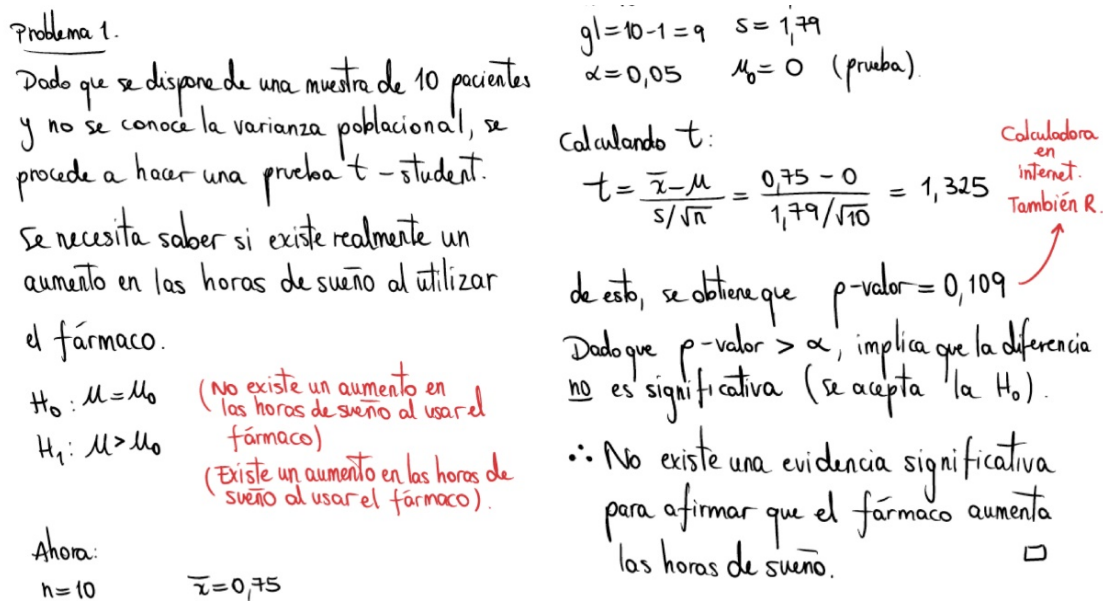 Problema 1.
Dado que se dispone de una muestra de 10 pacientes
y no se conoce la varianza poblacional, se
procede a hacer una prueba t-student.
Se necesita saber si existe realmente un
aumento en las horas de sueño al utilizar
el fármaco.
H₀: μ=μ₀ (No existe un aumento en
las horas de sueño al usar el
fármaco)
H₁: μ>μ₀
(Existe un aumento en las horas de
sueño al usar el fármaco).
Ahora:
n=10 x̄=0,75
gl=10-1=9 s=1,79
α=0,05 μ₀=0 (prueba).
Calculando t:
t = (x̄-μ)/(s/√n) = (0,75-0)/(1,79/√10) = 1,325
Calculadora
en
internet.
También R.
de esto, se obtiene que p-valor=0,109
Dado que p-valor > α, implica que la diferencia
no es significativa (se acepta la H₀).
∴ No existe una evidencia significativa
para afirmar que el fármaco aumenta
las horas de sueño. □